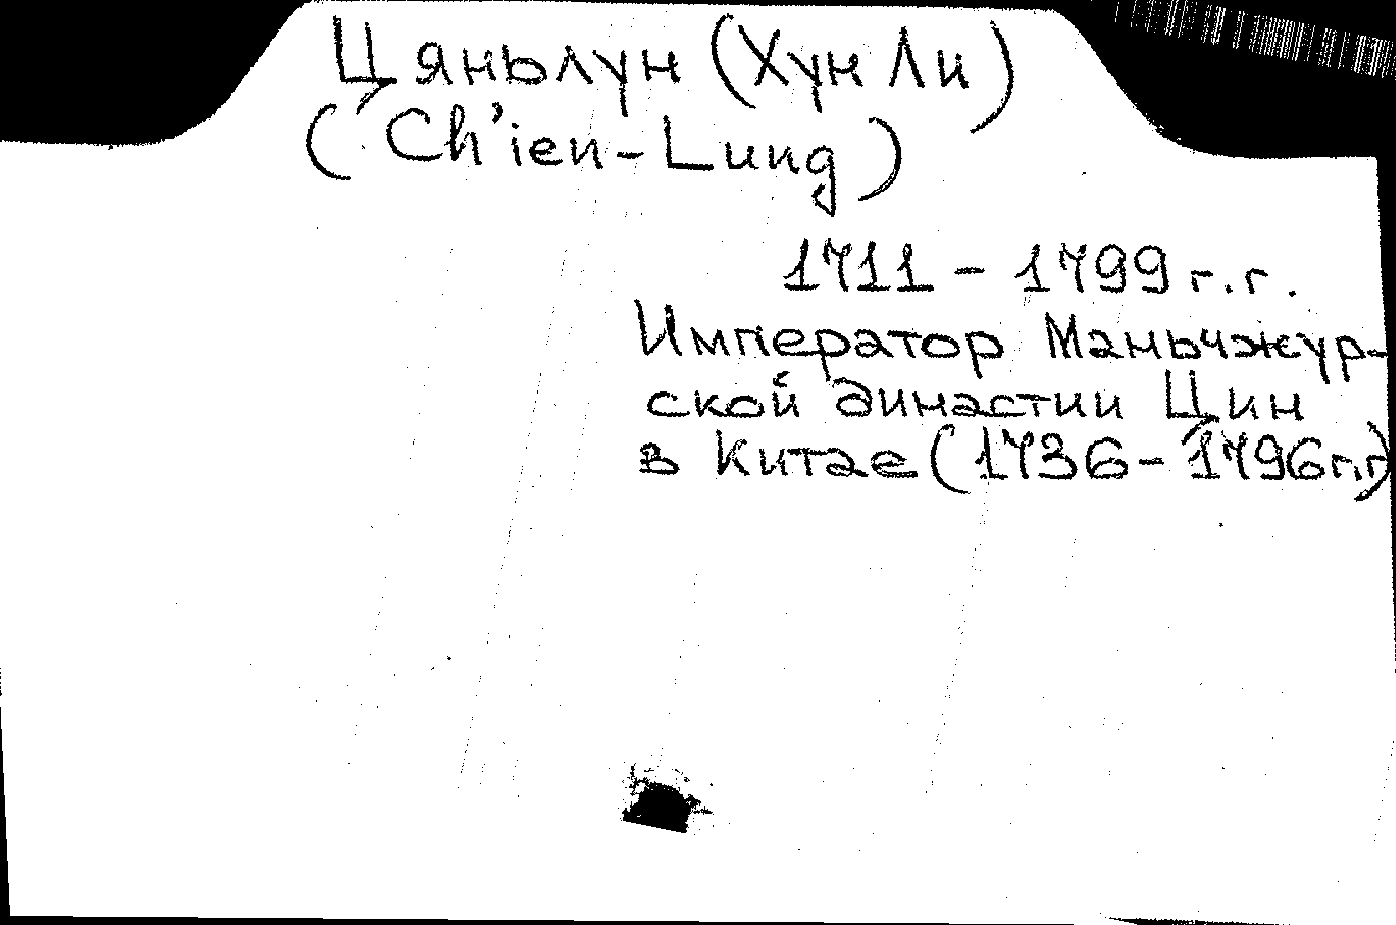 Цяньлун (Хун Ли)
(Ch'ien-Lung)
1711 - 1799 г.г.
Император Маньчжур-
ской династии Цин
в Китае (1736 - 1796 г.г)